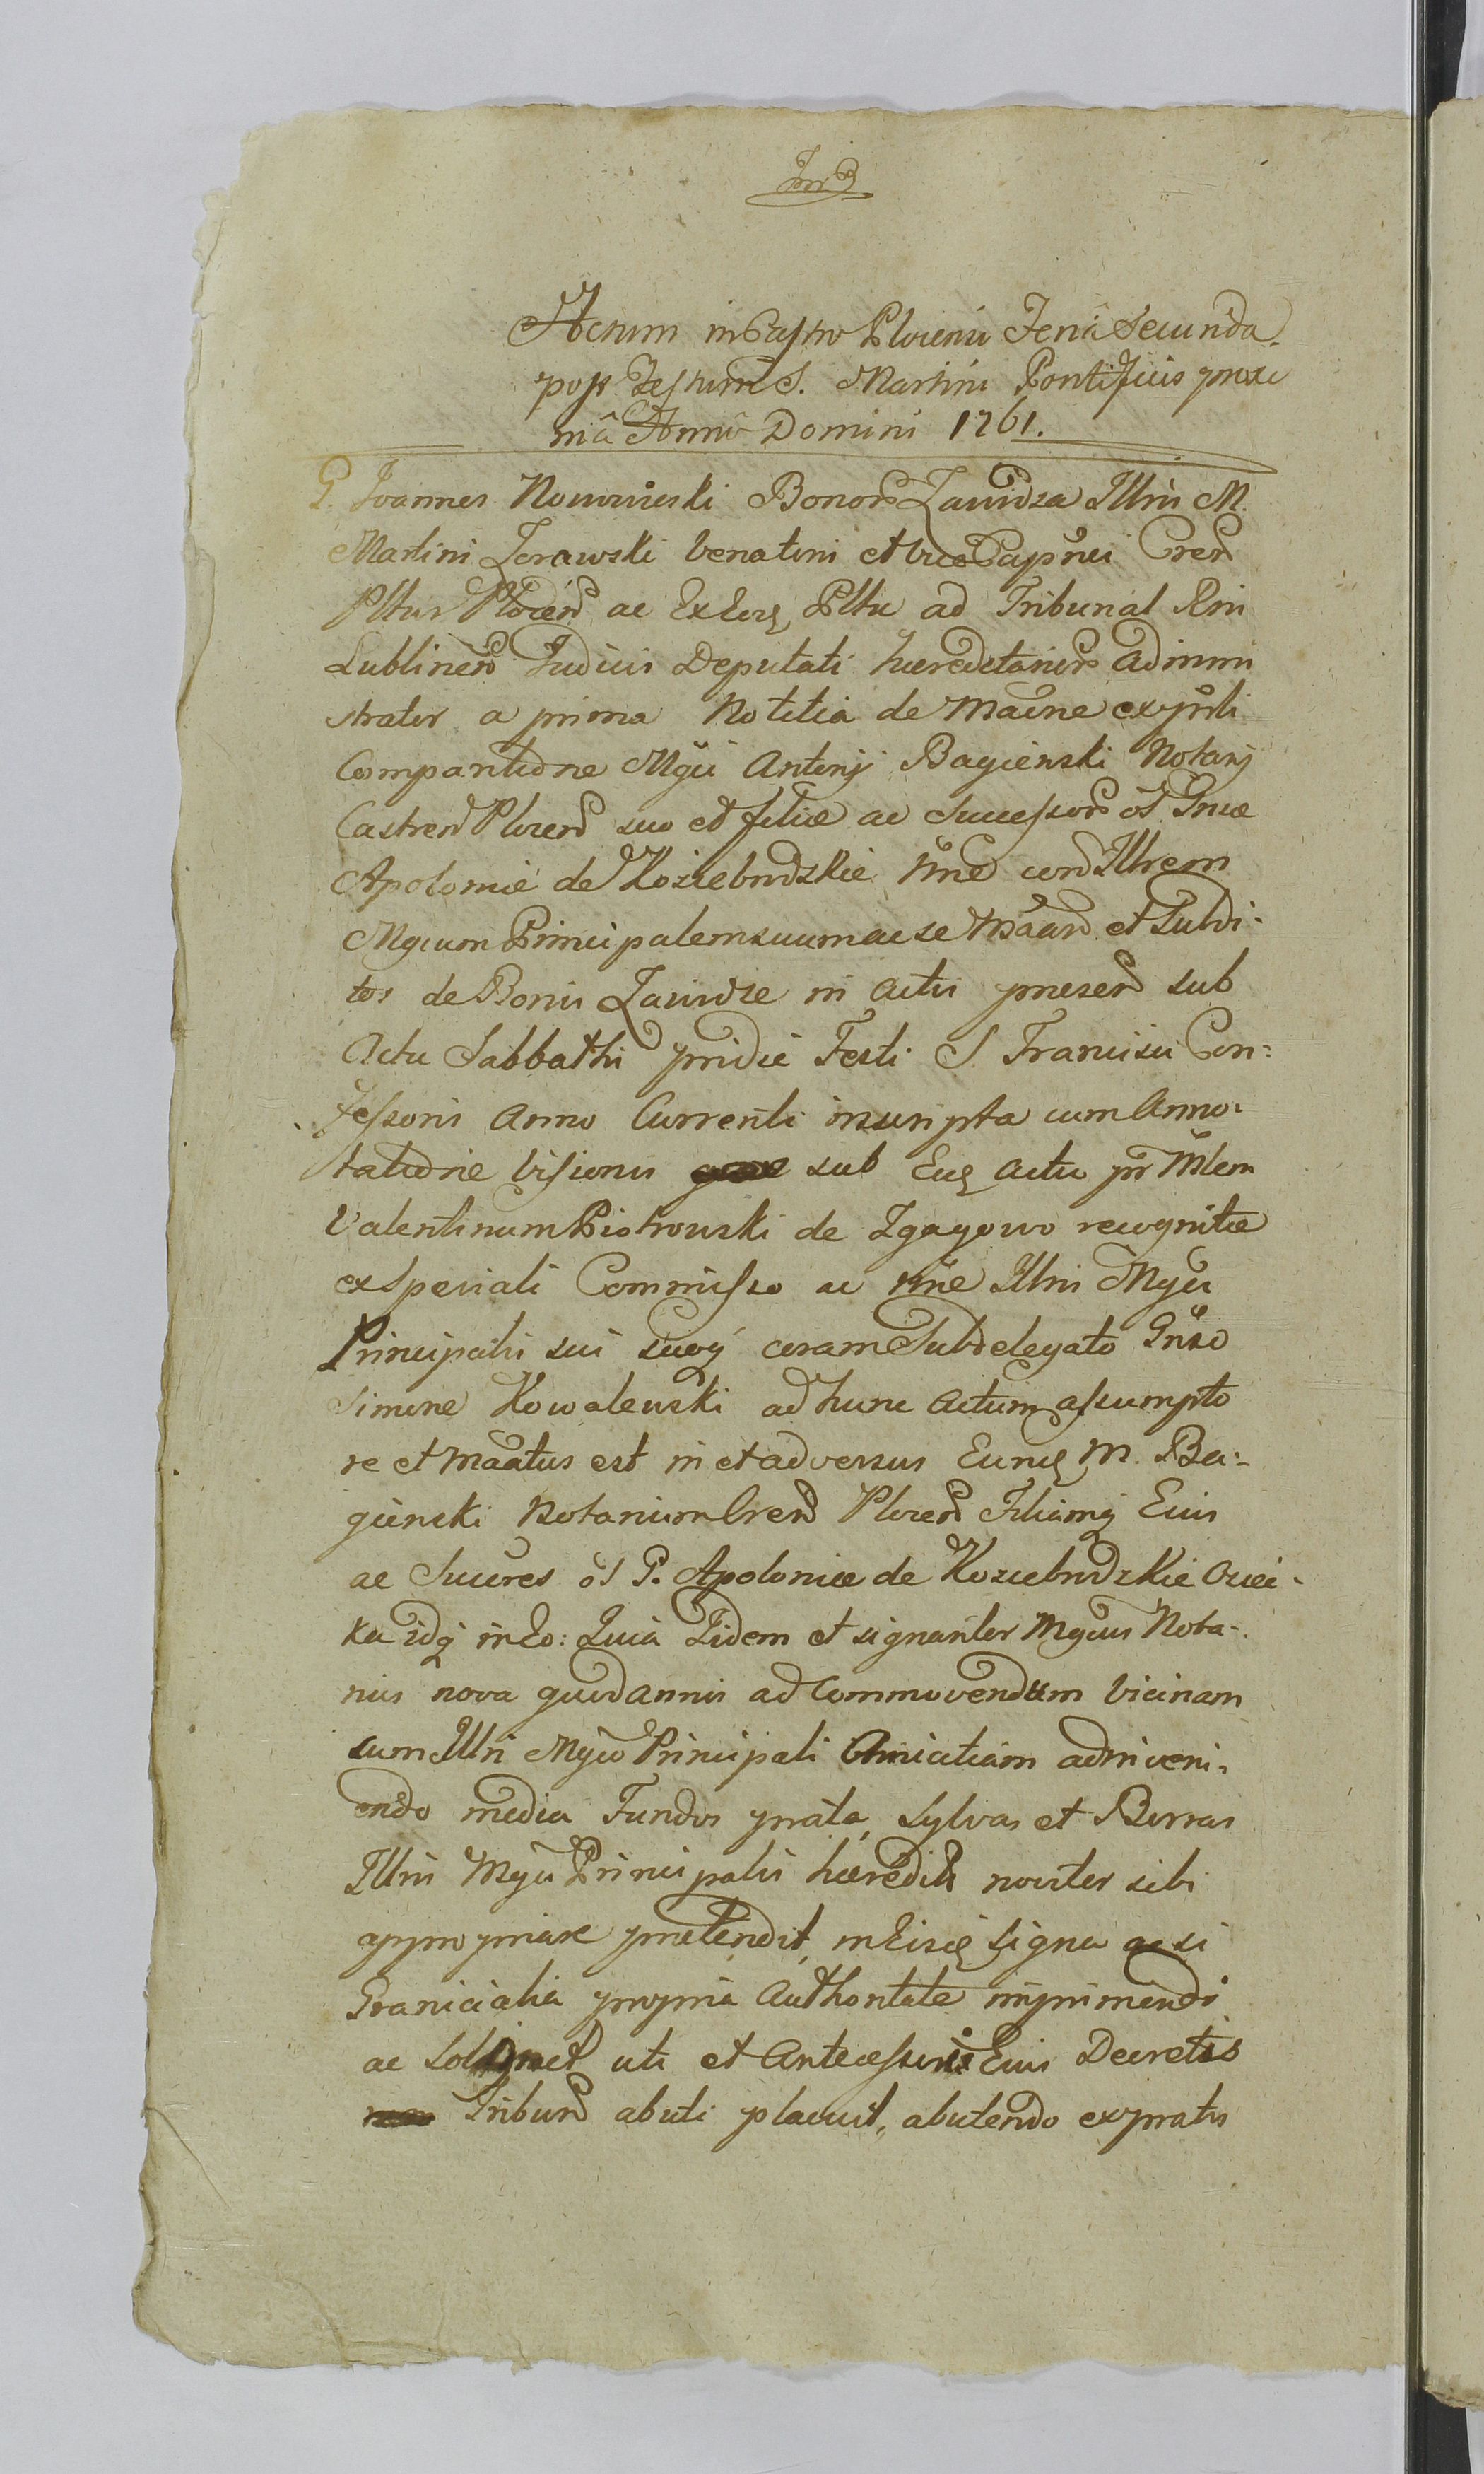 Actum in Castro Plocensi Feriâ Secunda
post Festum S. Martini Pontificis proxi
mâ Annô Domini 1761.
G. Joannes Nowowieski Bonorũ Zawidza Illris M.
Martini Zorawski Venatoris et Vice Capnei Cren
Pltus Plocen ac Exeoq Pltu ad Tribunal Rni
Lublinen Judicis Deputati hæreditariorũ admini
strator a prima Notitia de Maãne expñli
Comparitione Mgci Antonij Bagienski Notarij
Castren Plocen suo et filiæ ac Successorũ ol Gnsæ
Apoloniæ de Koziebrodzkie nñe cerñ Illrem
Mgcum Principalem suum ac se Maãñ et Subdi-
tos de Bonis Zawidze in actis præsen sub
Actu Sabbathi pridie Festi S. Francisci Con-
fessoris Anno Currenti inscripta cum Anno-
tatione Visionis sub Eoq actu pr Mlem
Valentinum Piotrowski de Zgagowo recognitæ
ex Speciali Commisso ac nñe Illris Mgci
Principalis sui suoq coram Subdelegato Gnso
Simone Kowalewski ad hunc actum assumpto
re et Maãtus est in et adversus Eunq M. Ba-
gienski Notarium Cren Plocen Filiamq Eius
ac Succres ol G. Apoloniæ de Koziebrodzkie
idq in Eo: Quia Iidem et signanter Mgcus Nota-
rius nova quod annis ad Commovendam vicinam
cum Illri Mgco Principali Amicitiam adinveni-
endo media Fundos prata, Sylvas et Borras
Illris Mgci Principalis hæredit noviter sibi
appropriare prætendit, in Eisq signa ac si
Granicialia propria Authoritate imprimendo
ac uti et Antecessoris Eius Decretis
Tribun abuti placuit, abutendo ex pratis